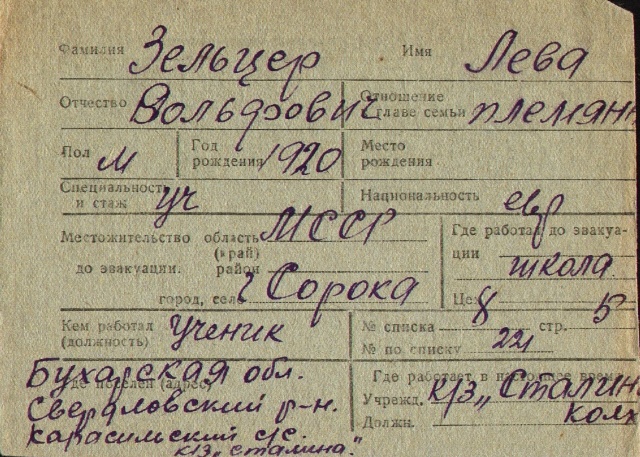 Фамилия Зельцер Имя Лева
Отчество Вольфович Отношение к главе семьи племянн
Пол М Год рождения 1920 Место рождения
Специальность и стаж уч Национальность евр
Местожительство область МССР Где работал до эвакуа-
(край) ции
до эвакуации. район школа
город, село г Сорока Цех
Кем работал ученик № списка 8 стр. 5
(должность) № по списку 221
Где поселен (адрес) Где работает в настоящее время
Бухарская обл. Учрежд. к/з „Сталин
Свердловский р-н. Должн. колх
Карасильский с/с.
к/з „Сталина."